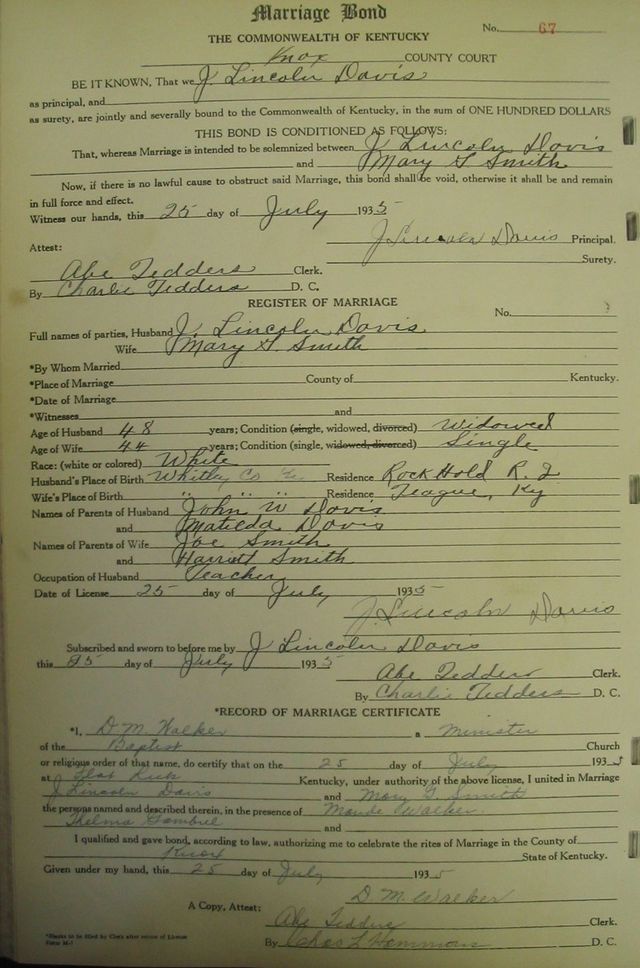 Marriage Bond
No. 67
THE COMMONWEALTH OF KENTUCKY
Knox COUNTY COURT
BE IT KNOWN, That we J. Lincoln Davis
as principal, and
as surety, are jointly and severally bound to the Commonwealth of Kentucky, in the sum of ONE HUNDRED DOLLARS
THIS BOND IS CONDITIONED AS FOLLOWS:
That, whereas Marriage is intended to be solemnized between J Lincoln Davis
and Mary Smith
Now, if there is no lawful cause to obstruct said Marriage, this bond shall be void, otherwise it shall be and remain
in full force and effect.
Witness our hands, this 25 day of July 1935
J Lincoln Davis Principal.
Surety.
Attest:
Abe Tedders Clerk.
By Charlie Tedders D. C.
REGISTER OF MARRIAGE
No.
Full names of parties, Husband J. Lincoln Davis
Wife Mary Smith
*By Whom Married
*Place of Marriage County of Kentucky.
*Date of Marriage
*Witnesses and
Age of Husband 48 years; Condition (single, widowed, divorced) Widowed
Age of Wife 44 years; Condition (single, widowed, divorced) Single
Race: (white or colored) White
Husband's Place of Birth Whitley Co Residence Rockhold R. 2
Wife's Place of Birth " " " Residence, Teague, Ky
Names of Parents of Husband John W Davis
and Matilda Davis
Names of Parents of Wife Joe Smith
and Harriett Smith
Occupation of Husband Teacher
Date of License 25 day of July 1935
J. Lincoln Davis
Subscribed and sworn to before me by J Lincoln Davis
this 25 day of July 1935
Abe Tedders Clerk.
By Charlie Tedders D. C.
*RECORD OF MARRIAGE CERTIFICATE
*I, D. M. Walker a Minister
of the Baptist Church
or religious order of that name, do certify that on the 25 day of July 1935
at Flat Lick Kentucky, under authority of the above license, I united in Marriage
J Lincoln Davis and Mary Smith
the persons named and described therein, in the presence of Maude Walker
Thelma Gambrel and
I qualified and gave bond, according to law, authorizing me to celebrate the rites of Marriage in the County of
Knox State of Kentucky.
Given under my hand, this 25 day of July 1935
D. M. Walker
A Copy, Attest:
Abe Tedders Clerk.
By Chas L Hammons D. C.
*Blanks to be filled by Clerk after return of License
Form M-7